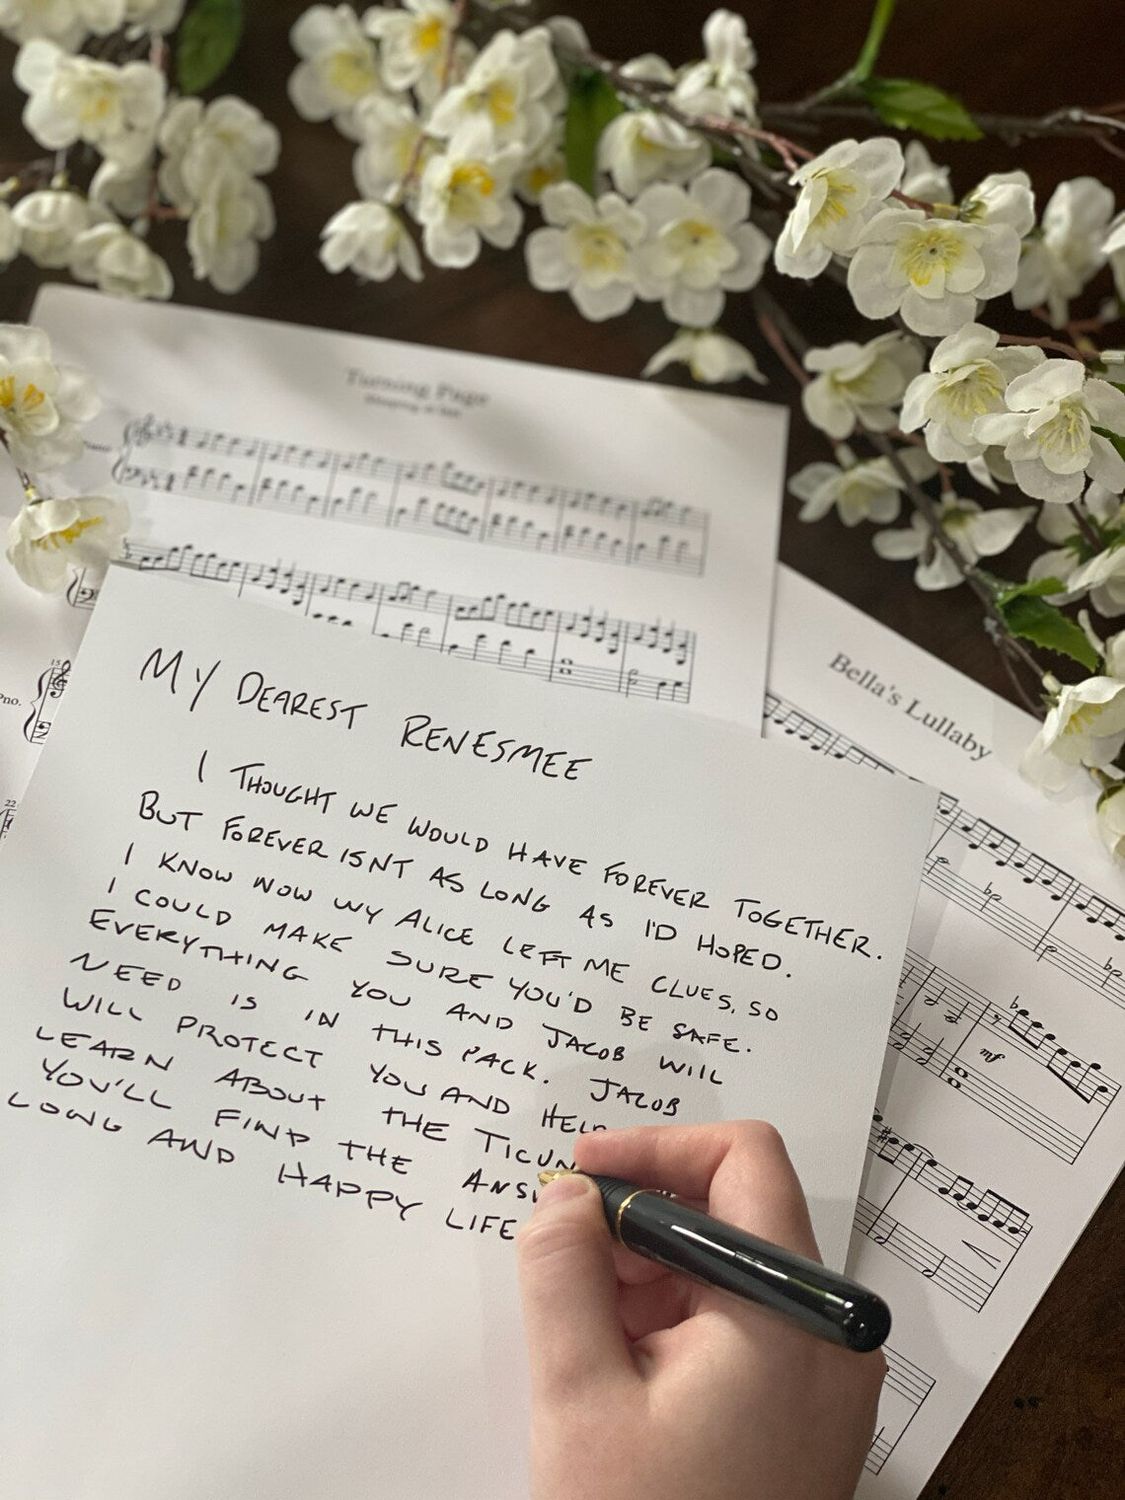 Turning Page
Piano
Bella's Lullaby
Pno.
15
22
mf
MY DEAREST RENESMEE
I THOUGHT WE WOULD HAVE FOREVER TOGETHER.
BUT FOREVER ISNT AS LONG AS I'D HOPED.
I KNOW NOW WY ALICE LEFT ME CLUES, SO
I COULD MAKE SURE YOU'D BE SAFE.
EVERYTHING YOU AND JACOB WILL
NEED IS IN THIS PACK. JACOB
WILL PROTECT YOU AND HELP
LEARN ABOUT THE
YOU'LL FIND THE
LONG AND HAPPY LIFE